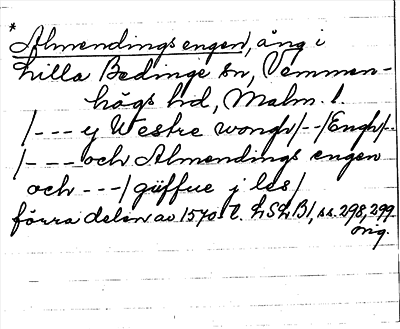 *
Almendings engen, äng i
Lilla Bedinge sn, Vemmen-
högs hd, Malm. l.
/--- y Westre wongh/--/Engh/--
/--- och Almendings engen
och ---/ güffue j les/
förra delen av 1570-t. LSLB1, ss. 298, 299
orig.